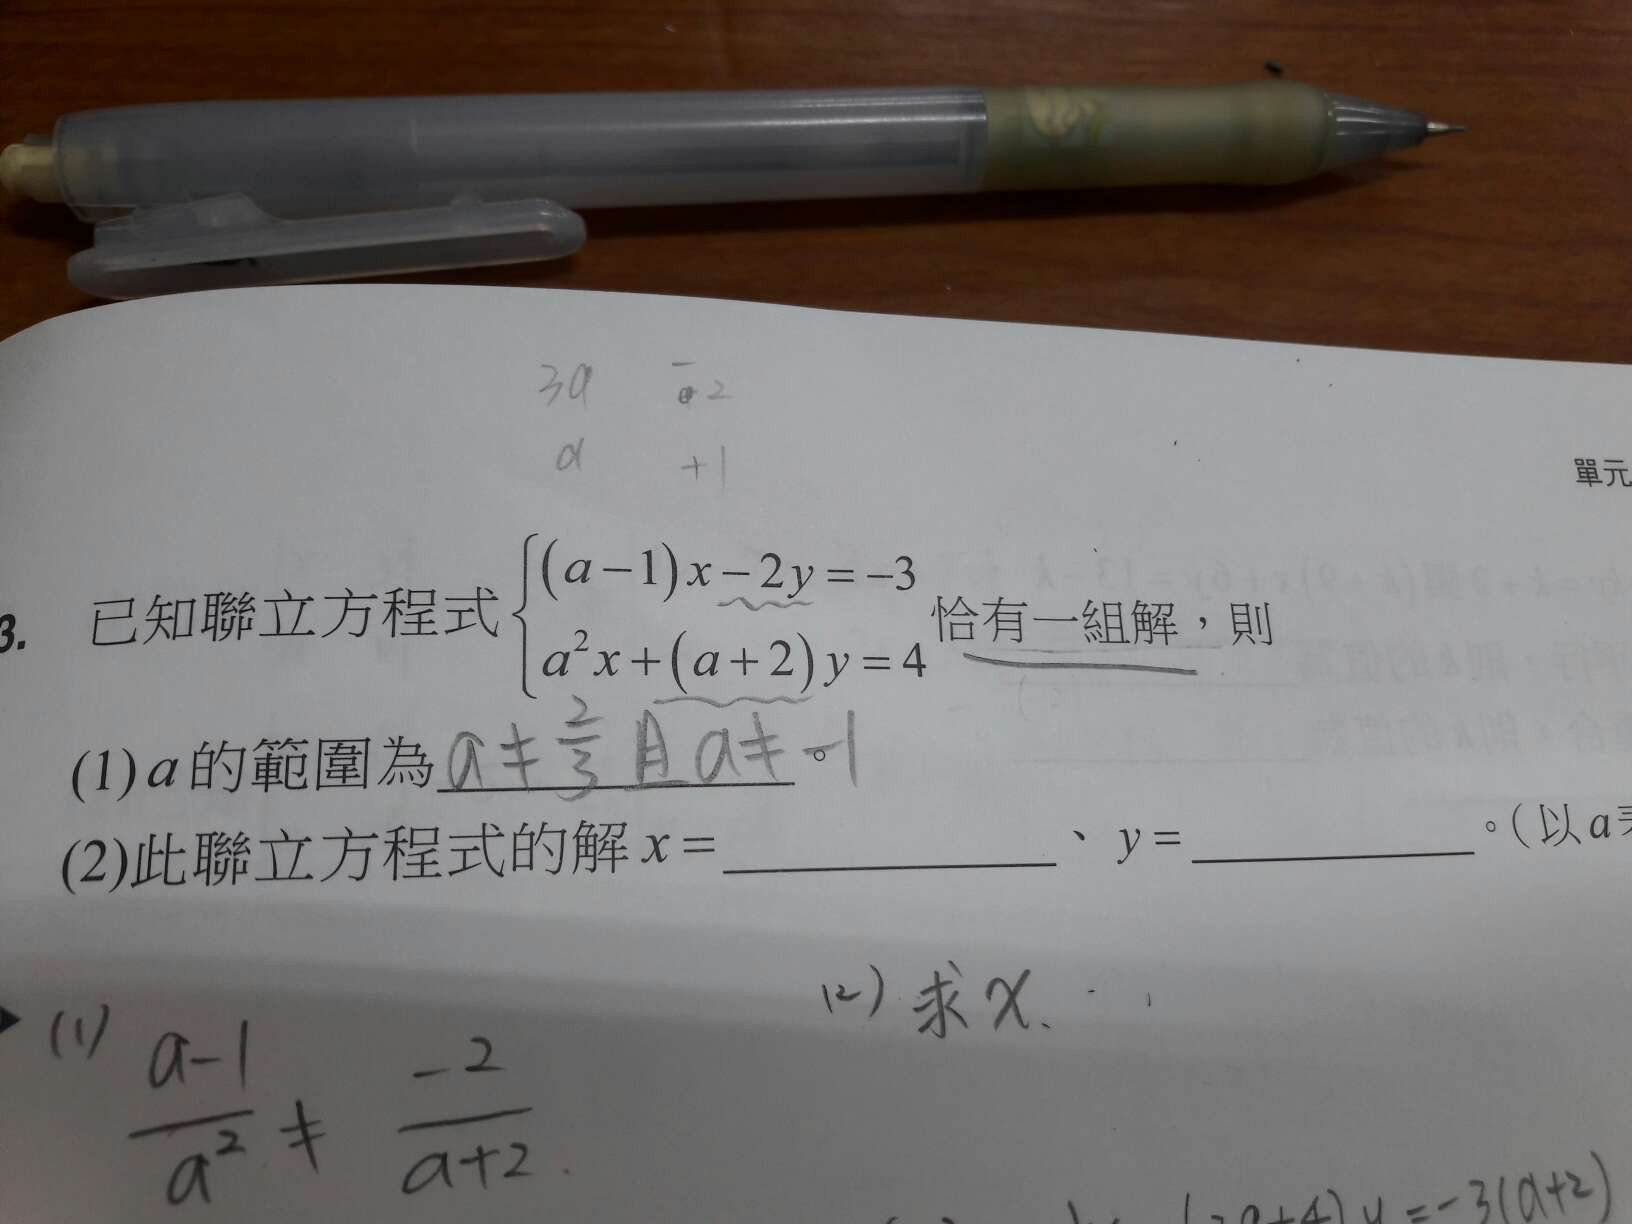 3a -2
a +1
單元
3. 已知聯立方程式 {(a−1)x−2y=−3
a²x+(a+2)y=4 恰有一組解，則
(1) a 的範圍為 a≠2/3 且 a≠-1。
(2)此聯立方程式的解 x= 、 y= 。(以 a
(1) (2) 求 x.
a-1/a² ≠ -2/a+2
a+4)y=-3(a+2)